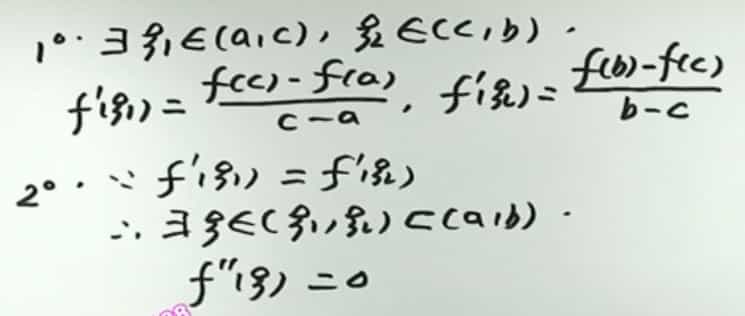 1°. ∃ ξ₁∈(a,c), ξ₂∈(c,b).
f'(ξ₁) = (f(c)-f(a))/(c-a), f'(ξ₂) = (f(b)-f(c))/(b-c)
2°. ∵ f'(ξ₁) = f'(ξ₂)
∴ ∃ ξ∈(ξ₁,ξ₂)⊂(a,b).
f''(ξ) = 0